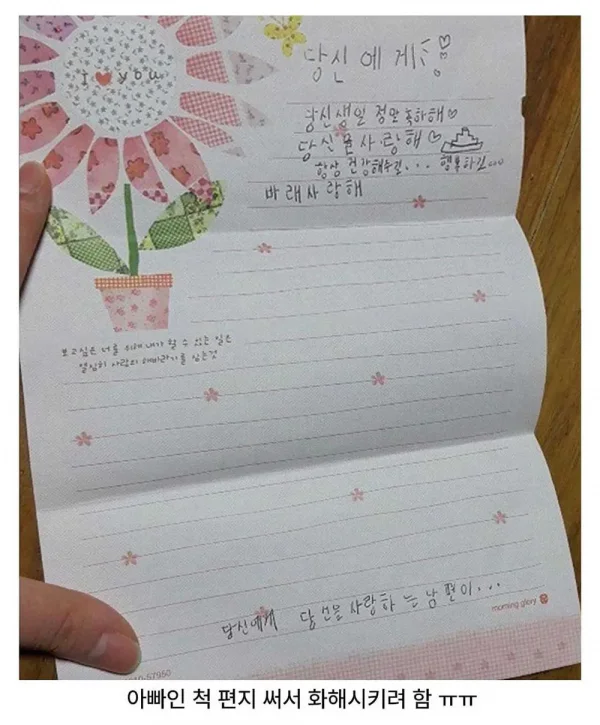 I ♥ you
당신에게
당신생일 정말 축하해♡
당신을사랑해♡
항상 건강해주길... 행복하길...
바래사랑해
보고싶은 너를 위해 내가 할 수 있는 일은
열심히 사랑의 해바라기를 심는것
당신에게 당신을사랑하는남편이...
morning glory
10-57950
아빠인 척 편지 써서 화해시키려 함 ㅠㅠ